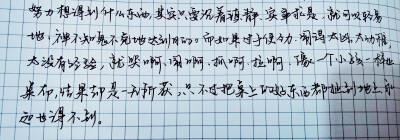 努力想得到什么东西，其实只要沉着镇静、实事求是，就可以轻易
地、神不知鬼不觉地达到目的。而如果过于使力，闹得太凶，太幼稚，
太没有经验，就哭啊，闹啊，抓啊，拉啊，像一个小孩一样扯
桌布，结果却是一无所获，只不过把桌上的好东西都扯到地上，永
远也得不到。